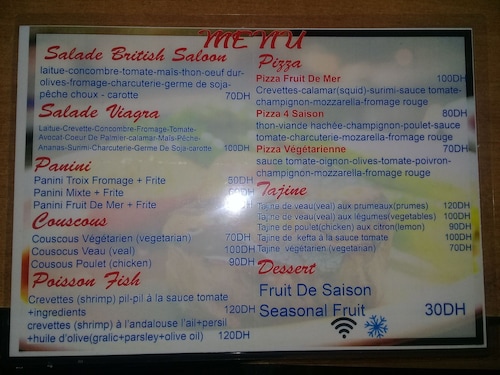 MENU
Salade British Saloon
laitue-concombre-tomate-maïs-thon-oeuf dur-
olives-fromage-charcuterie-germe de soja-
pêche choux - carotte 70DH
Salade Viagra
Laitue-Crevette-Concombre-Fromage-Tomate-
Avocat-Coeur De Palmier-calamar-Maïs-Pêche-
Ananas-Surimi-Charcuterie-Germe De Soja-carotte 100DH
Panini
Panini Troix Fromage + Frite 50DH
Panini Mixte + Frite
Panini Fruit De Mer + Frite
Couscous
Couscous Végétarien (vegetarian) 70DH
Couscous Veau (veal) 100DH
Cousous Poulet (chicken) 90DH
Poisson Fish
Crevettes (shrimp) pil-pil à la sauce tomate
+ingredients 120DH
crevettes (shrimp) à l'andalouse l'ail+persil
+huile d'olive(gralic+parsley+olive oil) 120DH
Pizza
Pizza Fruit De Mer 100DH
Crevettes-calamar(squid)-surimi-sauce tomate-
champignon-mozzarella-fromage rouge
Pizza 4 Saison 80DH
thon-viande hachée-champignon-poulet-sauce
tomate-charcuterie-mozarella-fromage rouge
Pizza Végétarienne 70DH
sauce tomate-oignon-olives-tomate-poivron-
champignon-mozzarella-fromage rouge
Tajine
Tajine de veau(veal) aux prumeaux(prumes) 120DH
Tajine de veau(veal) aux légumes(vegetables) 100DH
Tajine de poulet(chicken) aux citron(lemon) 90DH
Tajine de kefta à la sauce tomate 100DH
Tajine végétarien (vegetarian) 70DH
Dessert
Fruit De Saison
Seasonal Fruit 30DH